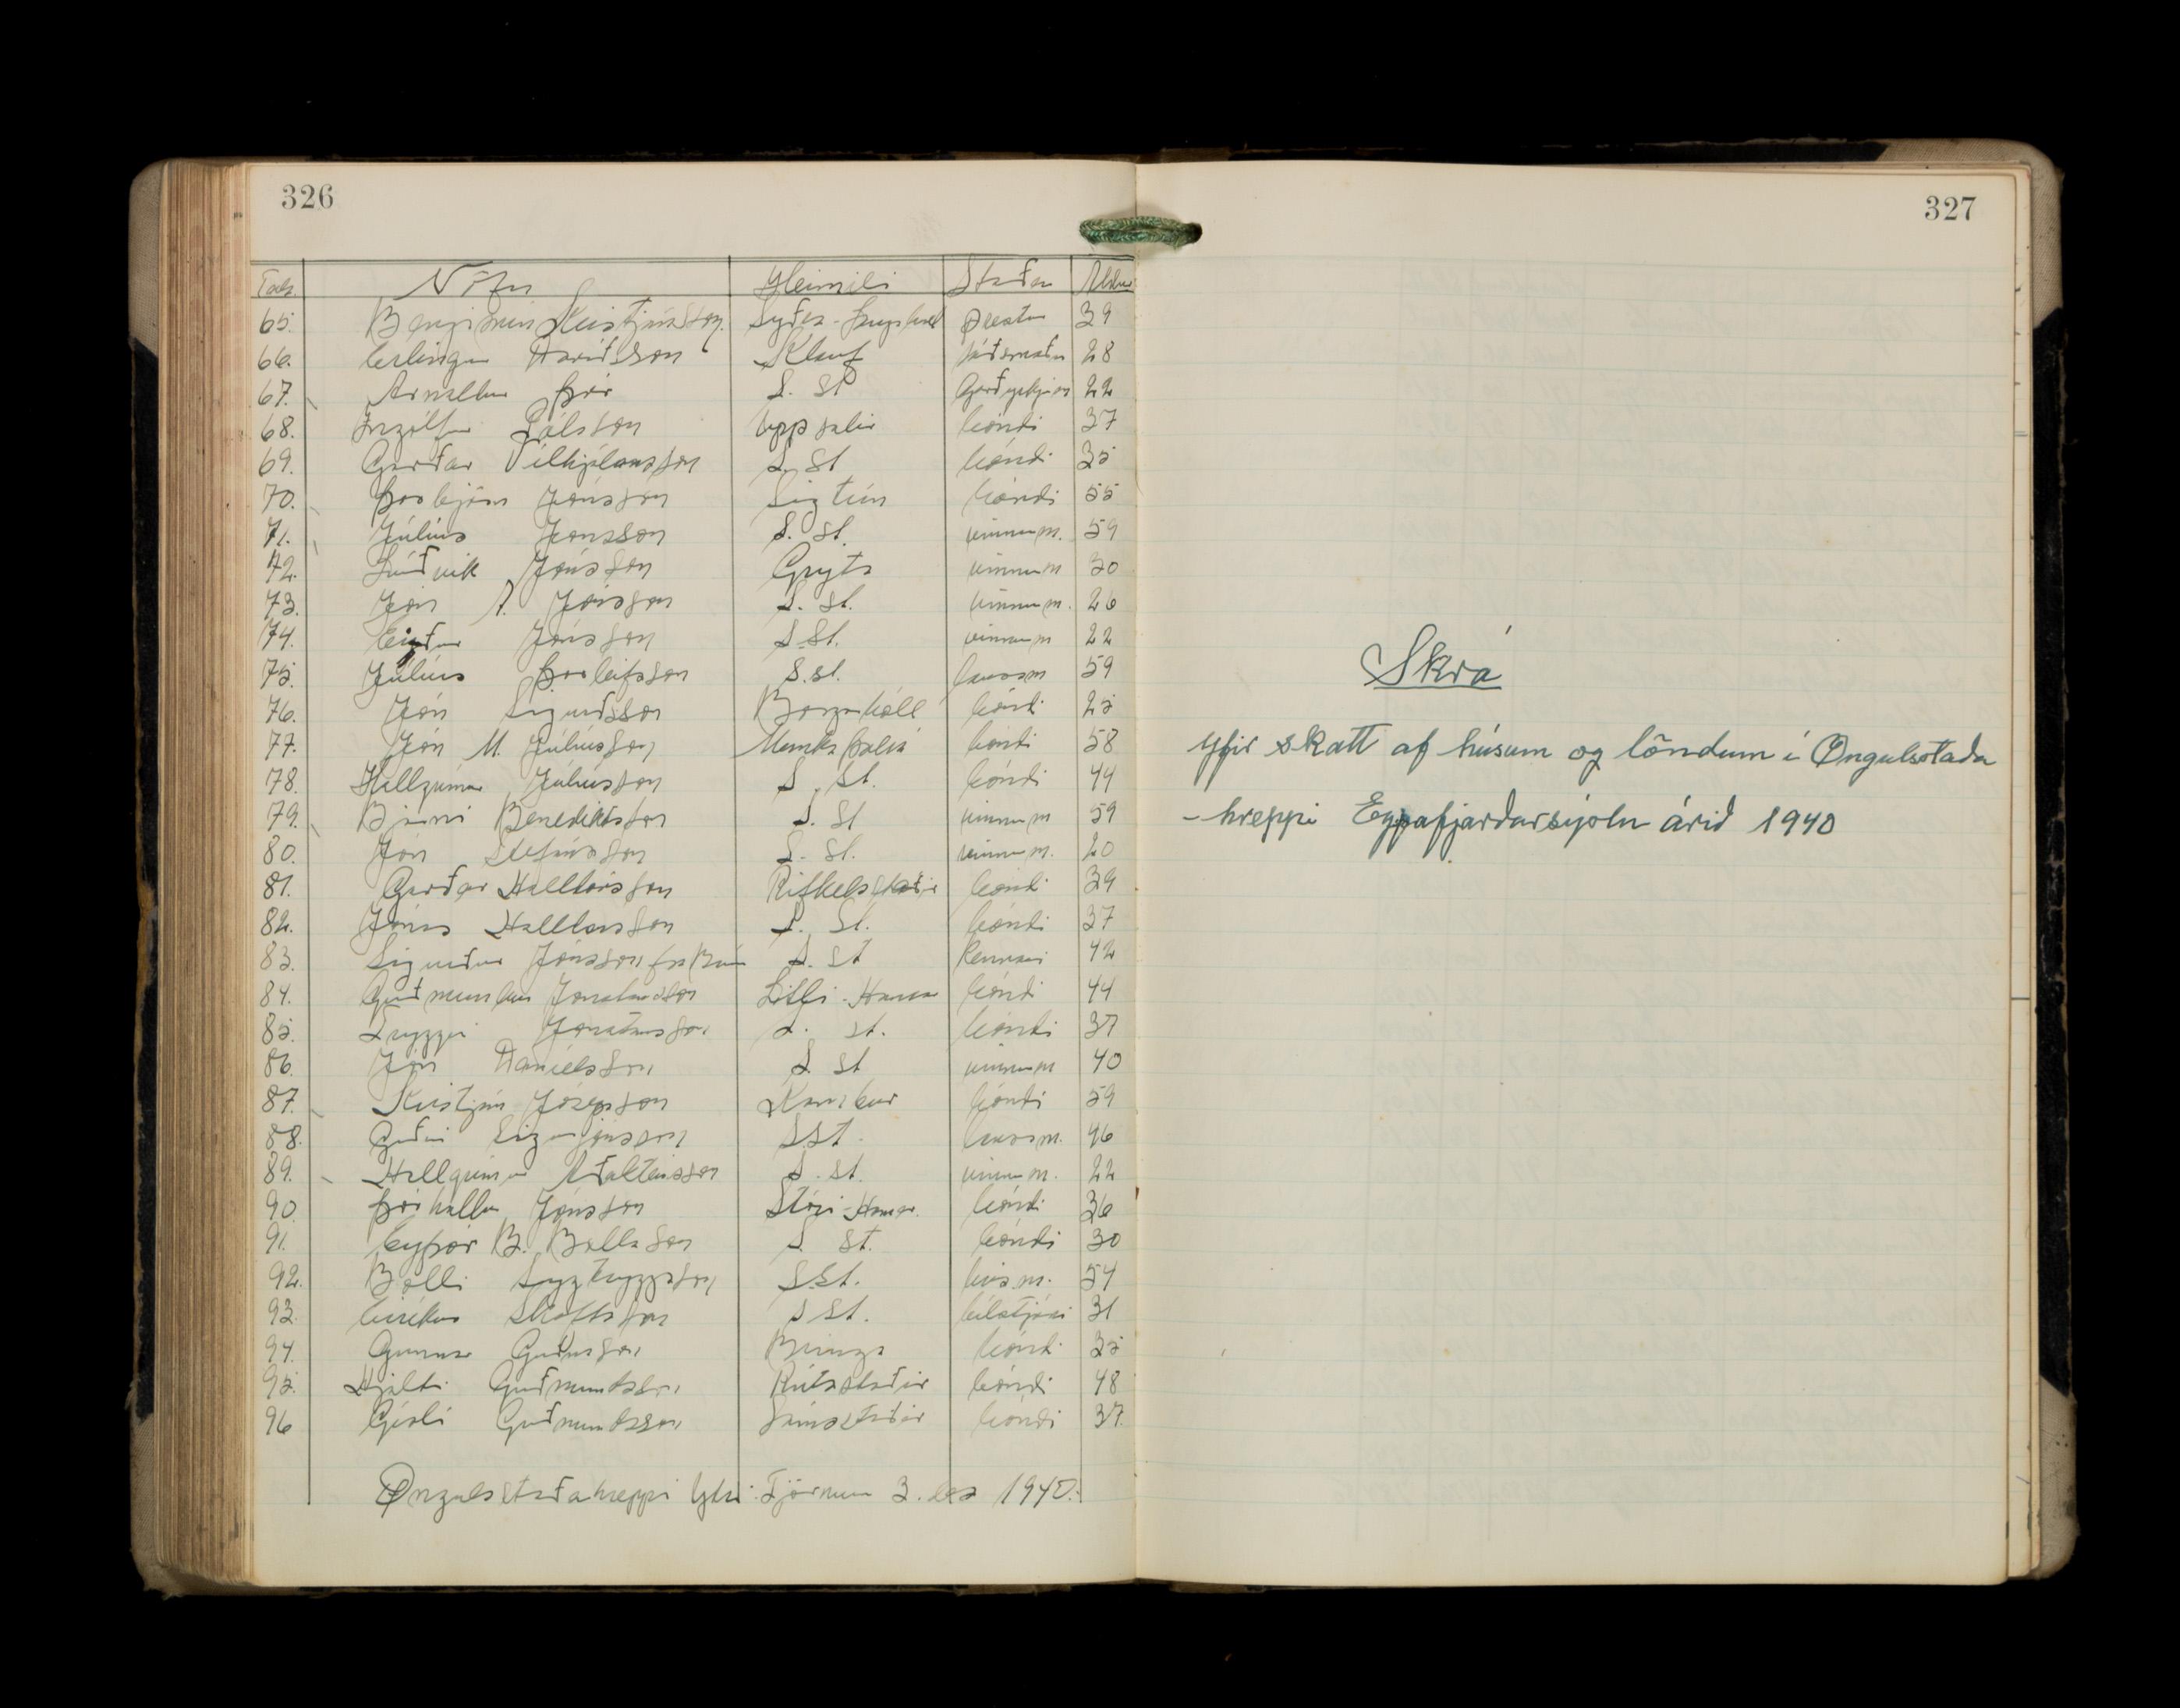 326
Tala. Nöfn Heimili Staða Aldur
65. Benjamín Kristjánsson Syðra-Laugaland prestur 39
66. Erlingur Davíðsson Klauf ráðsmaður 28
67. Arnaldur Þór S. St Garðyrkjum 22
68. Ingólfur Pálsson Uppsalir bóndi 37
69. Garðar Vilhjálmsson S. St bóndi 35
70. Þorbjörn Jónsson Sigtún bóndi 55
71. Júlíus Jónsson S. St. vinnum. 59
72. Lúðvik Jónsson Grýta vinnum 30
73. Jón A. Jónsson S. St. vinnum. 26
74. Jónsson S.St. vinnum 22
75. Júlíus Þorleifsson S.st. lausam 59
76. Jón Sigurdsson Borgarhóll bóndi 25
77. Jón M. Júlíusson Munkaþverá bóndi 58
78. Hallgrímur Júlíusson S. St. bóndi 44
79. Bjarni Benediktsson S. St vinnum 59
80. Jón Stefánsson S. St. vinnum. 20
81. Garðar Halldórsson Rifkelsstaðir bóndi 39
82. Jónas Halldórsson S. St. bóndi 37
83. Sigurður Jónsson frá Brún S. St Kennari 42
84. Guðmundur Jónatansson Litli-Hamar bóndi 44
85. Tryggvi Jónatansson S. st. bóndi 37
86. Jón Daníelsson S. St vinnum 40
87. Kristján Jósepsson Kambur bóndi 59
88. Guðni Sigurjónsson S.St. lausam. 46
89. Hallgrímur Aðalsteinsson S. St. vinnum. 22
90. Þórhallur Jónasson Stóri-Hamar. bóndi 36
91. Eyþór B. Bollason S. St. bóndi 30
92. Bolli Sigtryggsson S.St. húsm. 54
93. Eiríkur Skaftason S St. bílstjóri 31
94. Gunnar Guðnason Bringa bóndi 35
95. Hjalti Guðmundsson Rútsstaðir bóndi 48
96 Gísli Guðmundsson Sámsstaðir bóndi 37
Öngulsstaðahreppi Ytri-Tjörnum 3. des 1940.
327
Skrá
yfir skatt af húsum og löndum í Öngulsstaða
-hreppi Eyjafjarðarsýslu árið 1940